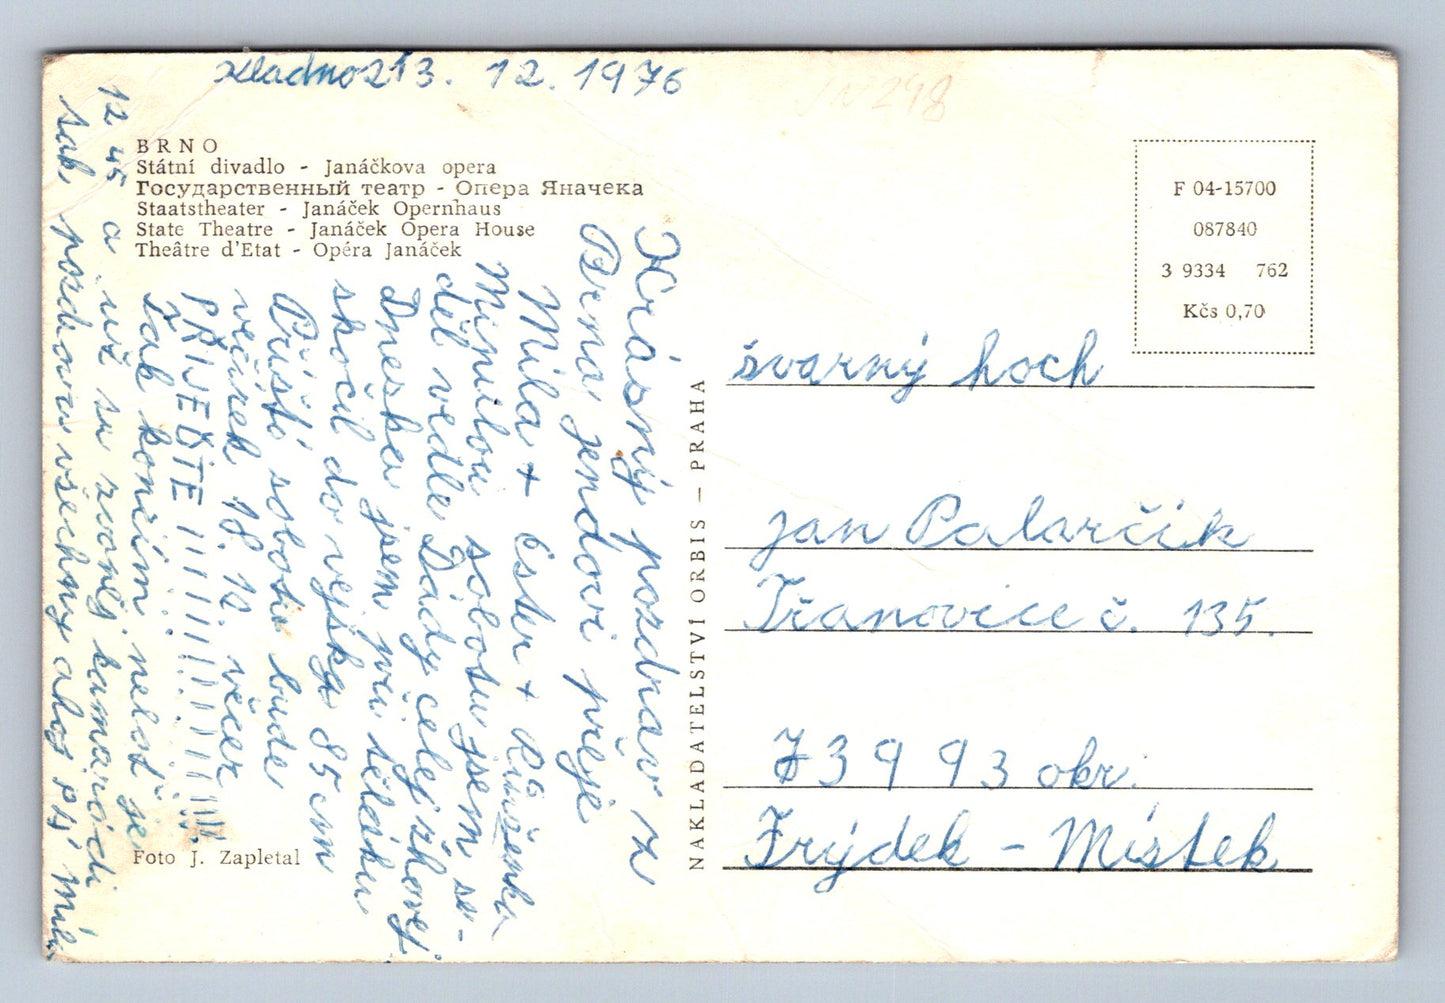 13. 12. 1976
298
BRNO
Státní divadlo - Janáčkova opera
Государственный театр - Опера Яначека
Staatstheater - Janáček Opernhaus
State Theatre - Janáček Opera House
Théâtre d'Etat - Opéra Janáček
Krásný pozdrav z
Brna, jendovi přeje
Mila + Ester + Růženka
Minulou sobotu jsem se-
děl vedle Dády celej žhavej
Dneska jsem při těláku
skočil do vejška 85 cm
Příští sobotu bude
večírek 18. 12. večer
PŘIJEĎTE !!!!!!!!!!!!!!!!
Tak končím nebo je
12 45 a už su zvoněj kamarádi
tak, pozdravuj všechny ahoj
Foto J. Zapletal
NAKLADATELSTVÍ ORBIS — PRAHA
F 04-15700
087840
3 9334 762
Kčs 0,70
švarný hoch
jan Palarčík
Třanovice č. 135.
73993 okr.
Frýdek - Místek